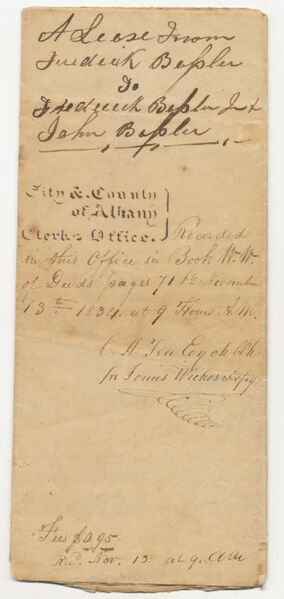 A Lease From
Fredrick Bessler
To
Frederick Bessler Jr &
John Bessler
City & County
of Albany
Clerks Office. Recorded
in this Office in Book W.W
of Deeds pages 71 &c November
13th 1834. at 9 Hour A.M.
C A Ten Eyck Clk
for
Fees $0.95
Recd. Nov. 13. at 9. A M